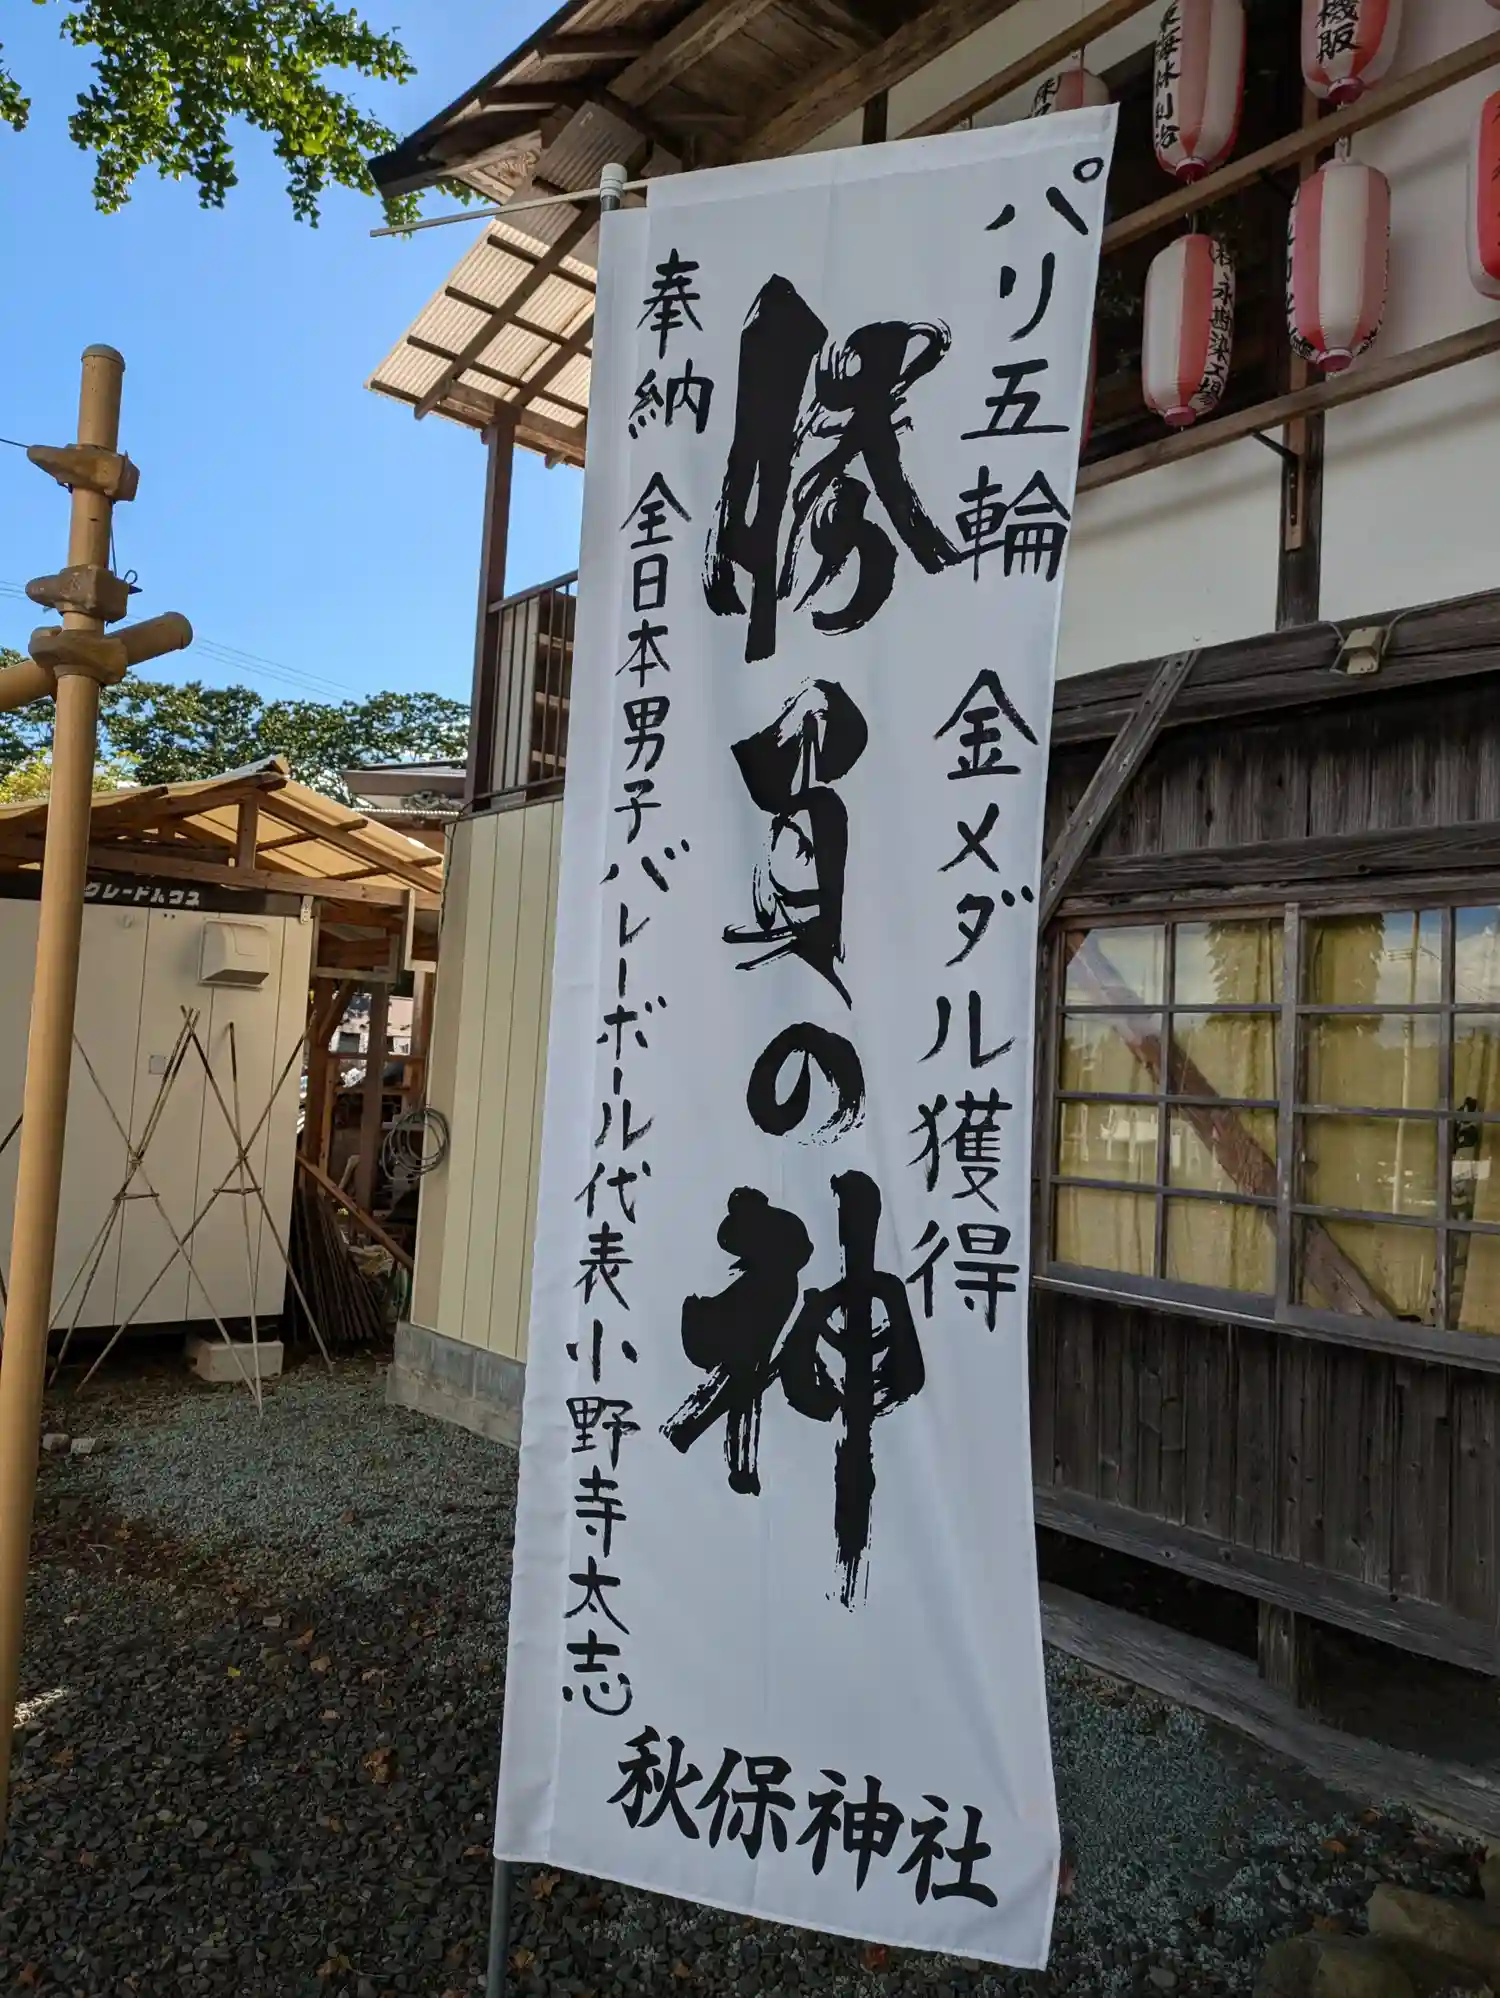 パリ五輪 金メダル獲得
勝負の神
奉納 全日本男子バレーボール代表 小野寺太志
秋保神社
グレードハウス
機販
㈱永勘染工場